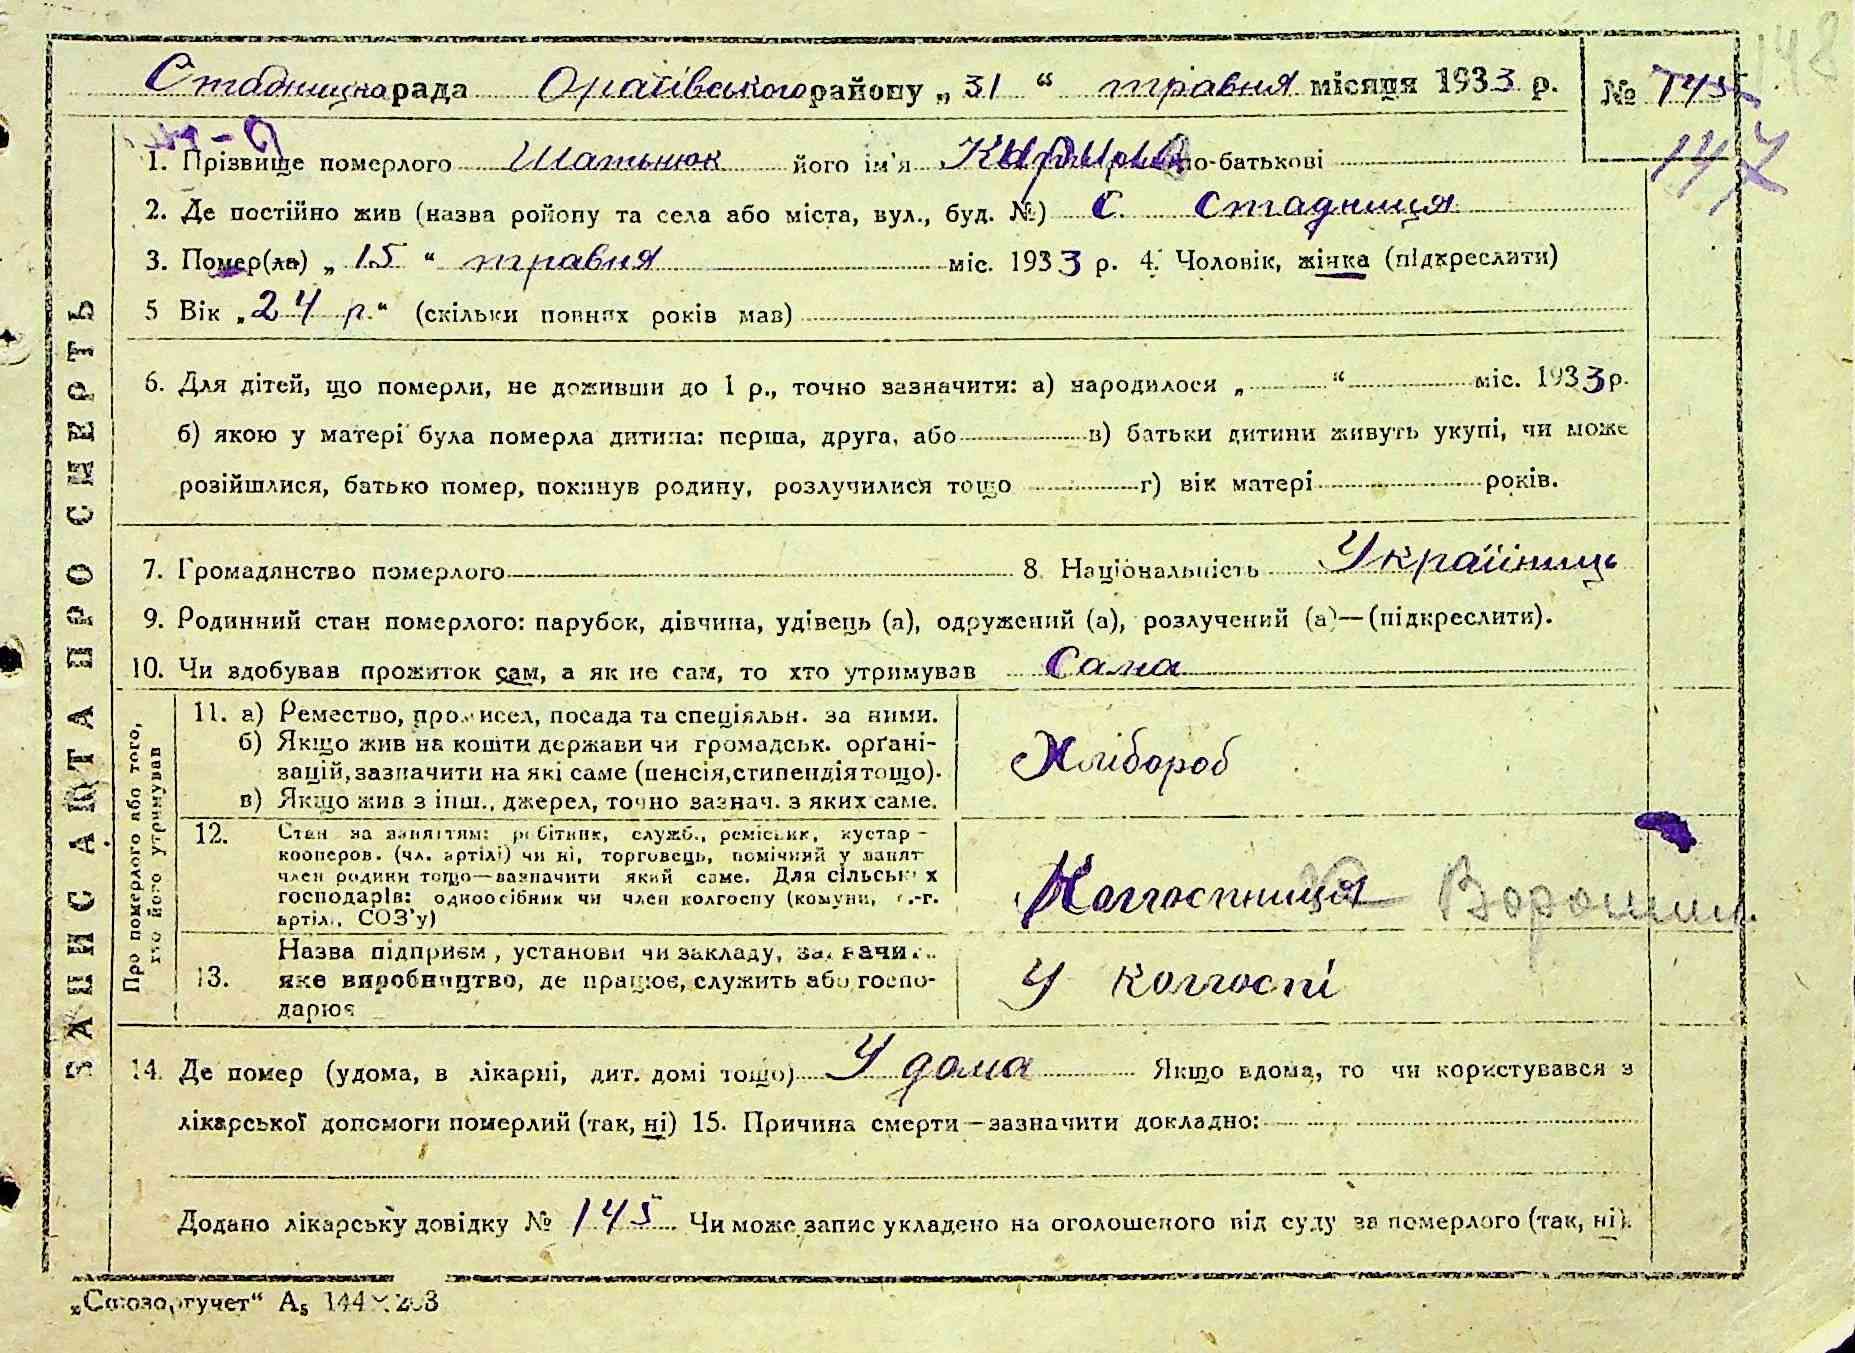 148
Стадницька рада Оратівського району „31“ травня місяця 1933 р. № 145
147
1. Прізвище померлого Шатьнюк його ім'я по-батькові
2. Де постійно жив (назва ройону та села або міста, вул., буд. №) С. Стадниця
3. Помер(ла) „15“ травня міс. 1933 р. 4. Чоловік, жінка (підкреслити)
5 Вік „24 р.“ (скільки повних років мав)
6. Для дітей, що померли, не доживши до 1 р., точно зазначити: а) народилося „ “ міс. 1933 р.
б) якою у матері була померла дитина: перша, друга, або в) батьки дитини живуть укупі, чи може
розійшлися, батько помер, покинув родину, розлучилися тощо г) вік матері років.
7. Громадянство померлого 8. Національність Украіниць
9. Родинний стан померлого: парубок, дівчина, удівець (а), одружений (а), розлучений (а)—(підкреслити).
10. Чи здобував прожиток сам, а як не сам, то хто утримував сама
ЗАПИС АКТА ПРО СМЕРТЬ
Про померлого або того,
хто його утримував
11. а) Ремество, промисел, посада та спеціяльн. за ними.
б) Якщо жив на кошти держави чи громадськ. орґані-
зацій, зазначити на які саме (пенсія, стипендія тощо).
в) Якщо жив з інш., джерел, точно зазнач. з яких саме.
Хлібороб
12. Стан за заняттям: робітник, служб., реміснк, кустар -
кооперов. (чл. артілі) чи ні, торговець, помічний у занят
член родини тощо—зазначити який саме. Для сільських
господарів: одноосібник чи член колгоспу (комуни, с.-г.
артіл., СОЗ'у)
Колгоспниця Ворошил.
13. Назва підприєм, установи чи закладу, зазначи..
яке виробництво, де працює, служить або госпо-
дарює
У колгоспі
14. Де помер (удома, в лікарні, дит. домі тощо) У дома Якщо вдома, то чи користувався з
лікарської допомоги померлий (так, ні) 15. Причина смерти—зазначити докладно:
Додано лікарську довідку № 145 Чи може запис укладено на оголошеного від суду за померлого (так, ні).
„Союзоргучет“ А₅ 144×203